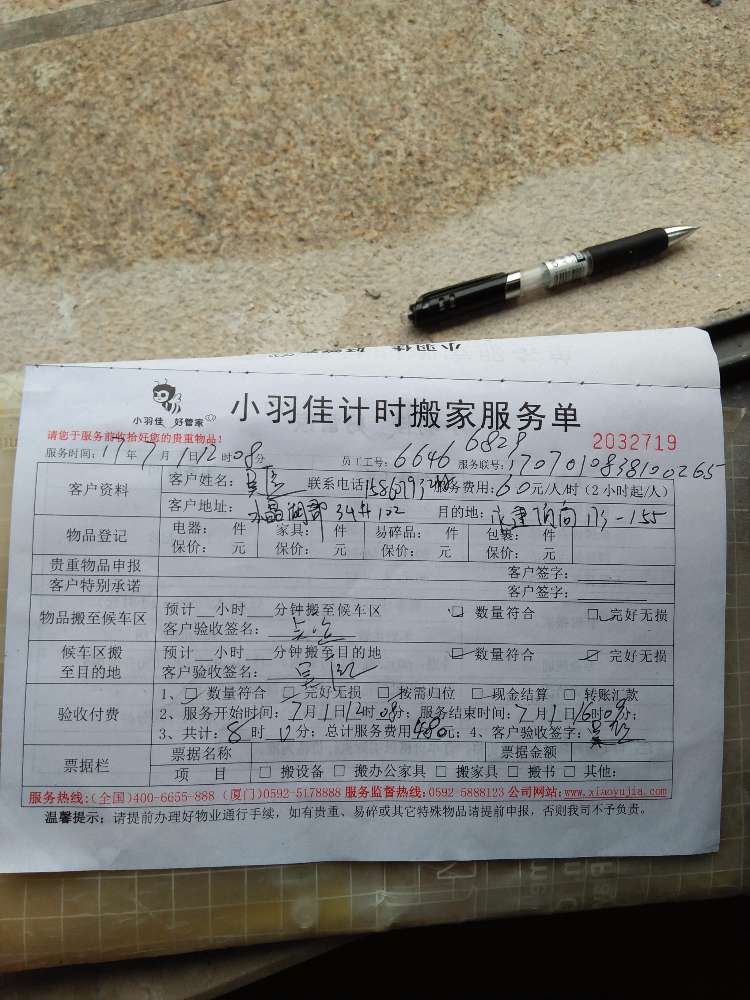 小羽佳 好管家
小羽佳计时搬家服务单
请您于服务前收拾好您的贵重物品!
2032719
服务时间: 17年7月1日12时08分 员工工号: 6646 6829 服务联号: 1707010838100265
客户资料 客户姓名: 联系电话 服务费用: 60元/人/时 (2小时起/人)
客户地址: 水晶湖郡34# 102 目的地:
物品登记 电器: 件 家具: 件 易碎品: 件 包裹: 件
保价: 元 保价: 元 保价: 元 保价: 元
贵重物品申报 客户签字:
客户特别承诺 客户签字:
物品搬至候车区 预计 小时 分钟搬至候车区 数量符合 完好无损
客户验收签名:
候车区搬至目的地 预计 小时 分钟搬至目的地 数量符合 完好无损
客户验收签名:
验收付费 1、 数量符合 完好无损 按需归位 现金结算 转账汇款
2、服务开始时间: 7月1日12时08分; 服务结束时间: 7月1日16时09分;
3、共计: 8时 0分; 总计服务费用480元; 4、客户验收签字:
票据栏 票据名称 票据金额
项 目 搬设备 搬办公家具 搬家具 搬书 其他:
服务热线:(全国)400-6655-888 (厦门)0592-5178888 服务监督热线:0592-5888123 公司网站:www.xiaoyujia.com
温馨提示: 请提前办理好物业通行手续,如有贵重、易碎或其它特殊物品请提前申报,否则我司不予负责。